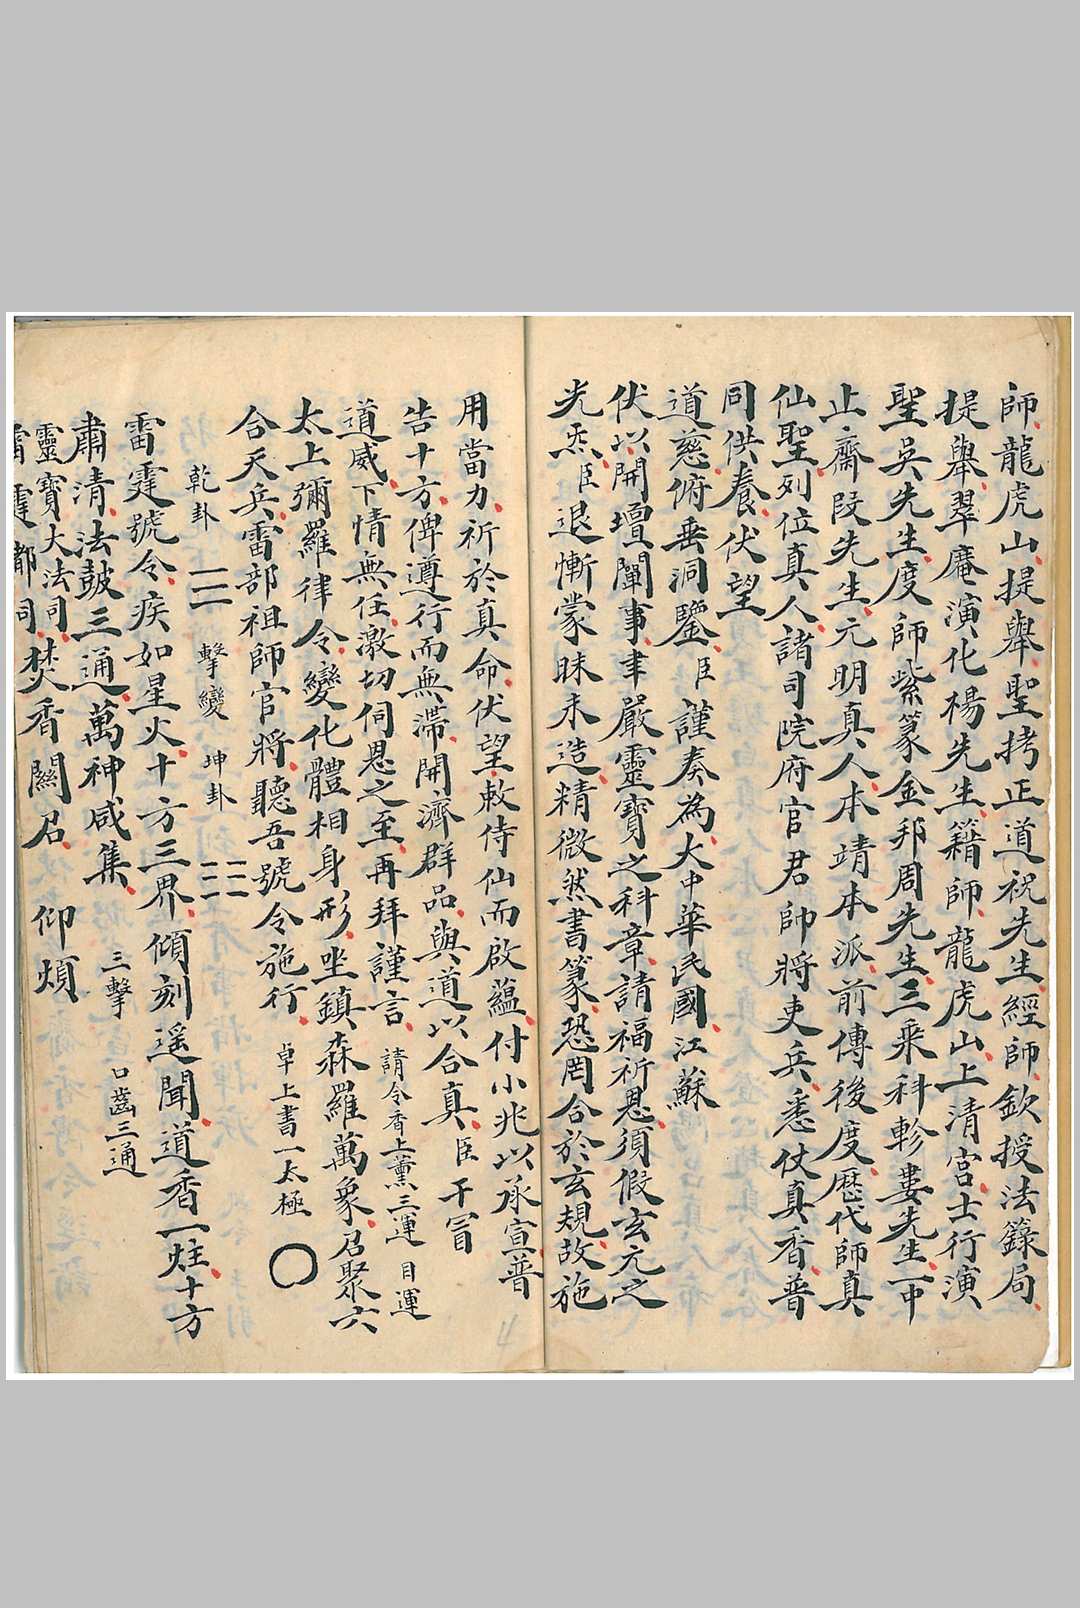 師龍虎山提舉聖拷正道祝先生經師欽授法籙局
提舉翠庵演化楊先生籍師龍虎山上清宮士行演
聖吳先生度師紫篆金邦周先生三乘科軫婁先生一中
止齋段先生元明真人本靖本派前傳後度歷代師真
仙聖列位真人諸司院府官君帥將吏兵悉仗真香普
同供養伏望
道慈俯垂洞鑒臣謹奏為大中華民國江蘇
伏以開壇闡事聿嚴靈寶之科章請福祈恩須假玄元之
光炁臣退慚蒙昧未造精微然書篆恐罔合於玄規故施
用當力祈於真命伏望敕侍仙而啟蘊付小兆以承宣普
告十方俾遵行而無滯開濟群品與道以合真臣干冒
道威下情無任激切伺恩之至再拜謹言 請令香上薰三運 目運
太上彌羅律令變化體相身形坐鎮森羅萬象召聚六
合天兵雷部祖師官將聽吾號令施行 卓上書一太極
乾卦 ☰ 擊變 坤卦 ☷
雷霆號令疾如星火十方三界傾刻遥聞道香一炷十方
肅清法鼓三通萬神咸集 三擊 口齒三通
靈寶大法司焚香關召 仰煩
雷霆都司